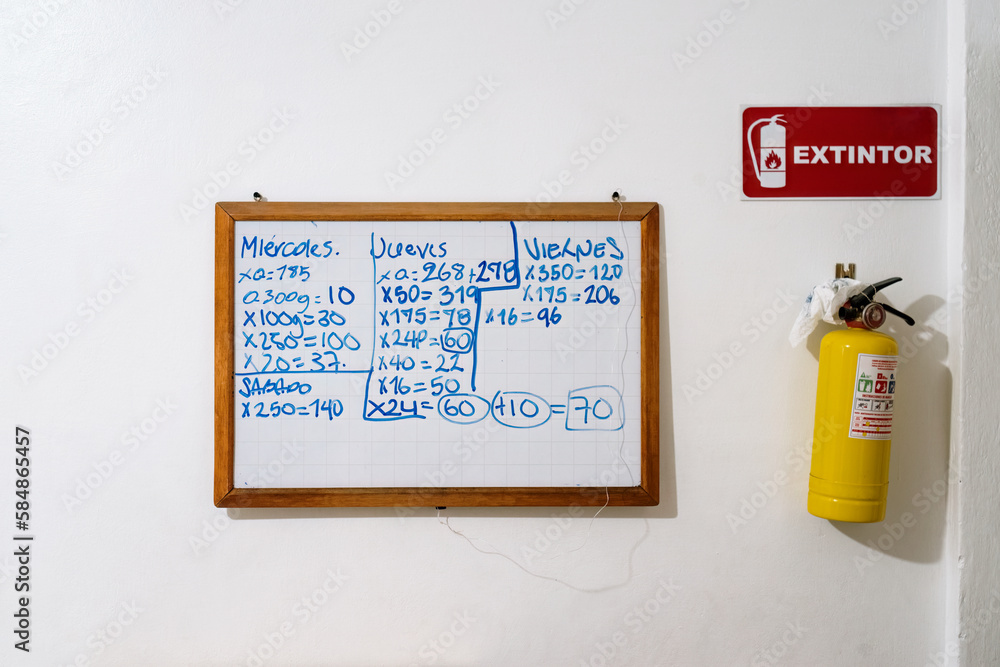 Miércoles.
xa=185
a300g=10
x100g=30
x250=100
x20=37.
SABADO
x250=140
Jueves
xa=268+278
x50=319
x175=78
x24P=60
x40=22
x16=50
x24=60+10=70
VIERNES
x350=120
x175=206
x16=96
EXTINTOR
Adobe Stock | #584865457